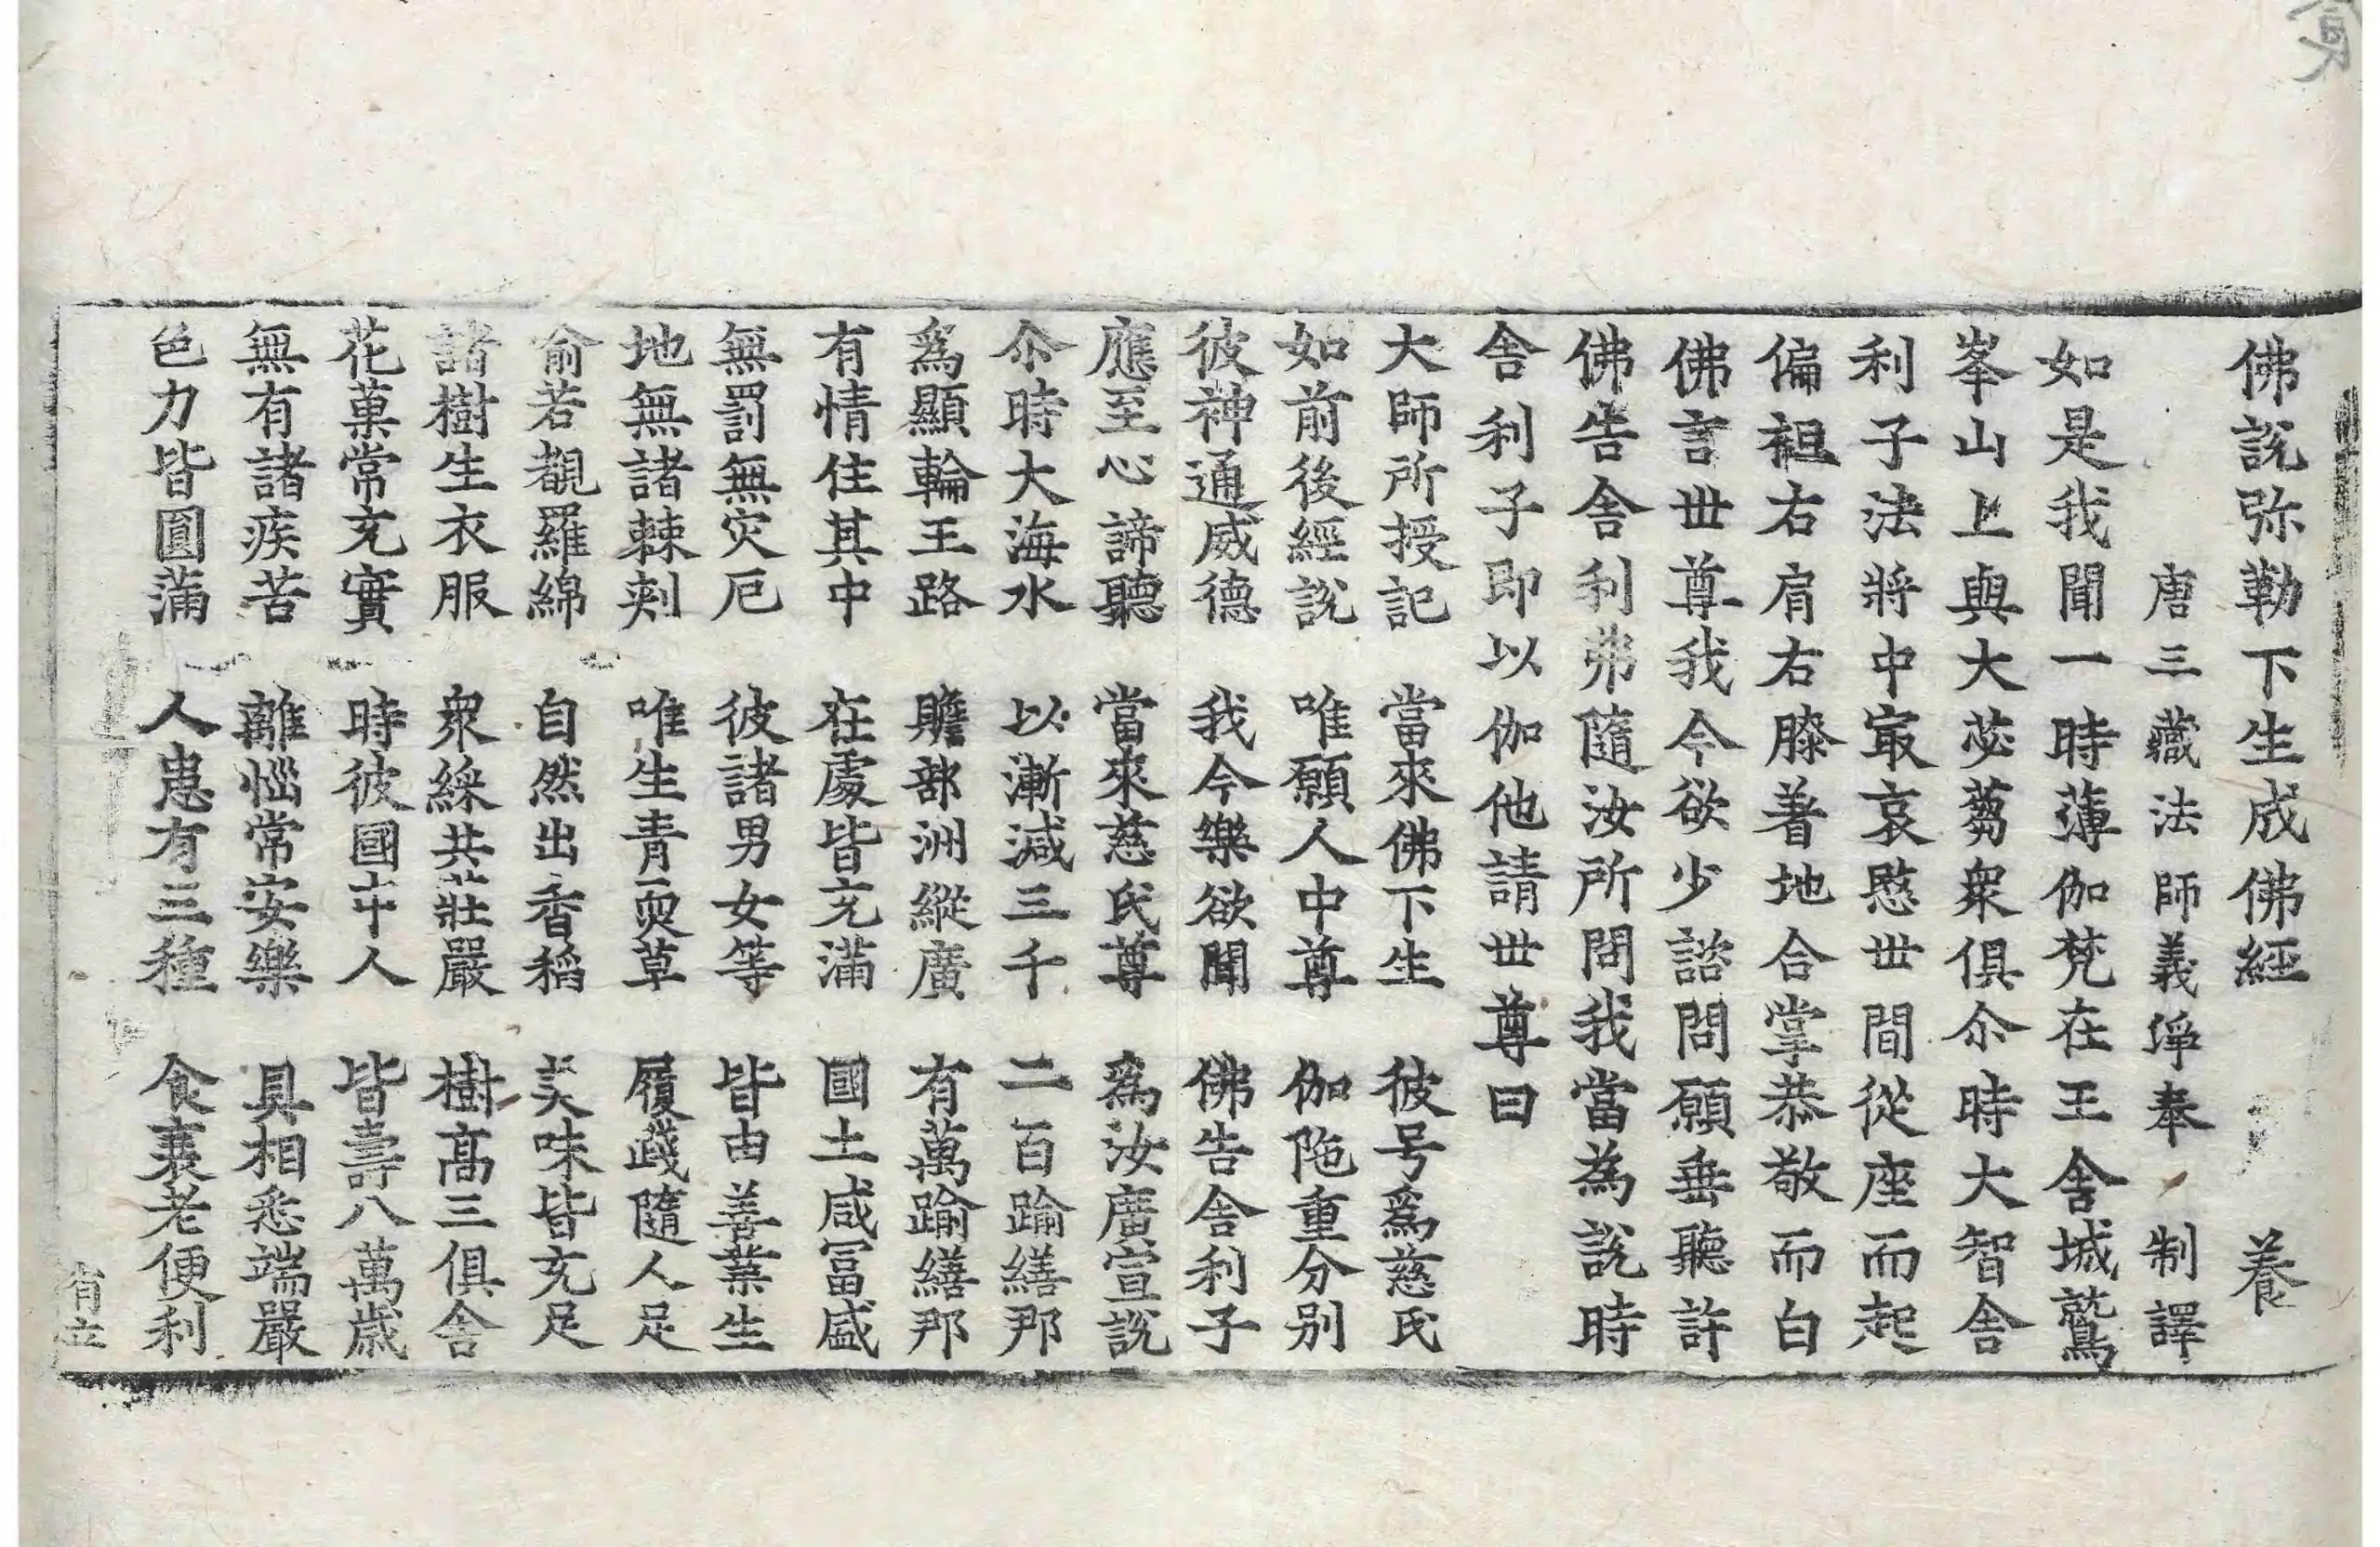 佛說弥勒下生成佛經 養
唐三藏法師義淨奉 制譯
如是我聞一時薄伽梵在王舍城鷲
峯山上與大苾蒭衆俱尒時大智舍
利子法將中㝡哀愍丗間從座而起
偏袒右肩右膝著地合掌恭敬而白
佛言丗尊我今欲少諮問願垂聽許
佛告舍利弗隨汝所問我當為說時
舍利子即以伽他請丗尊曰
大師所授記 當來佛下生 彼号爲慈氏
如前後經說 唯願人中尊 伽陁重分别
彼神通威德 我今樂欲聞 佛告舍利子
應至心諦聽 當來慈氏尊 爲汝廣宣說
尒時大海水 以漸減三千 二百踰繕那
爲顯輪王路 贍部洲縱廣 有萬踰繕那
有情住其中 在處皆充滿 國土咸冨盛
無罰無灾厄 彼諸男女等 皆由善業生
地無諸棘刾 唯生青耎草 履踐隨人足
喻若覩羅綿 自然出香稻 美味皆充足
諸樹生衣服 衆綵共莊嚴 樹髙三俱舍
花菓常充實 時彼國中人 皆壽八萬歳
無有諸疾苦 離惱常安樂 具相悉端嚴
色力皆圓滿 人患有三種 食衰老便利